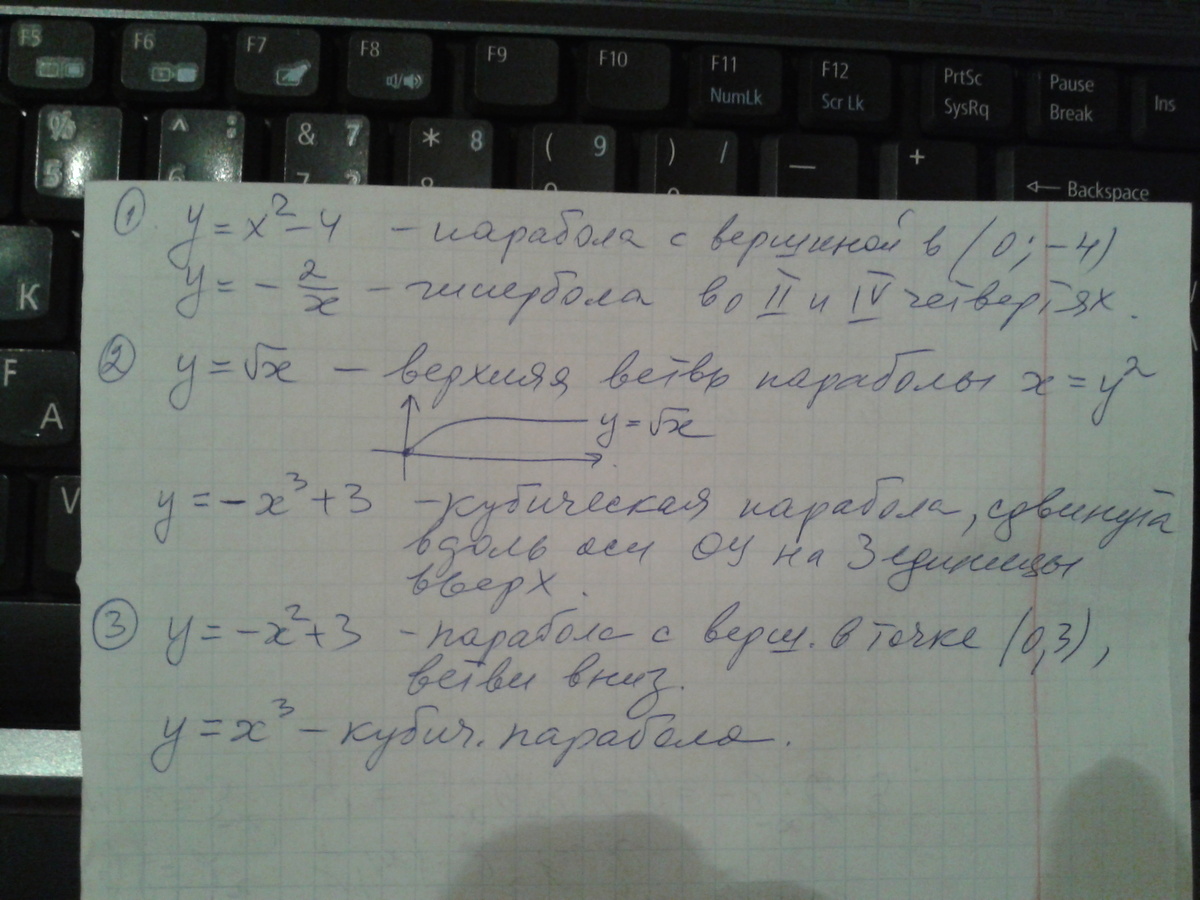 F5 F6 F7 F8 F9 F10 F11 NumLk F12 Scr Lk PrtSc SysRq Pause Break Ins
% 5 ^ : 6 & 7 * 8 ( 9 ) / — + ← Backspace
K
F A
V
① y = x² - 4 - парабола с вершиной в (0; -4)
y = - 2/x - гипербола во II и IV четвертях.
② y = √x - верхняя ветвь параболы x = y²
y = √x
y = -x³ + 3 - кубическая парабола, сдвинута
вдоль оси ОУ на 3 единицы
вверх.
③ y = -x² + 3 - парабола с верш. в точке (0,3),
ветви вниз.
y = x³ - кубич. парабола.